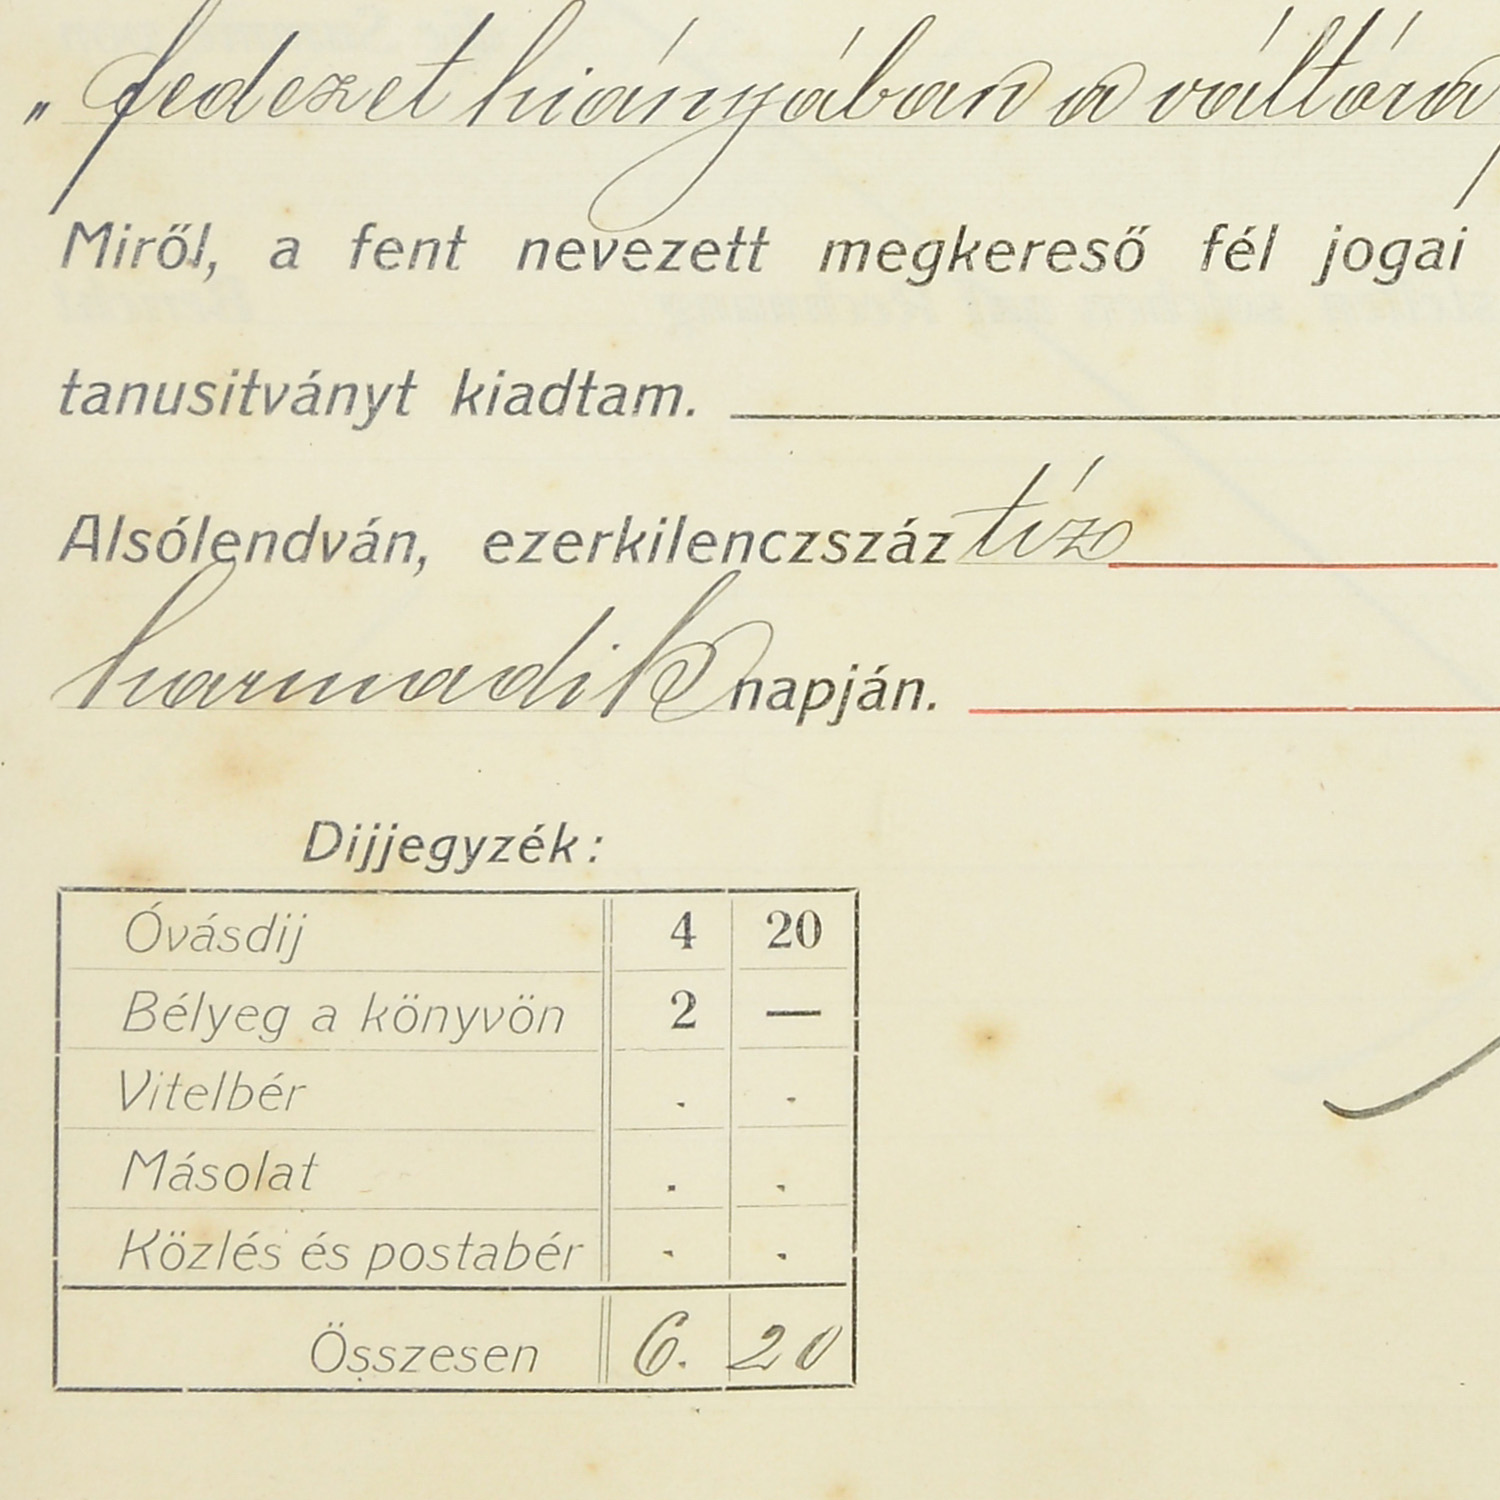 „fedezet hiányában a váltóra
Miről, a fent nevezett megkereső fél jogai
tanusitványt kiadtam.
Alsólendván, ezerkilenczszáz tíz
harmadik napján.
Dijjegyzék:
Óvásdij 4 20
Bélyeg a könyvön 2 —
Vitelbér . .
Másolat . .
Közlés és postabér . .
Összesen 6. 20